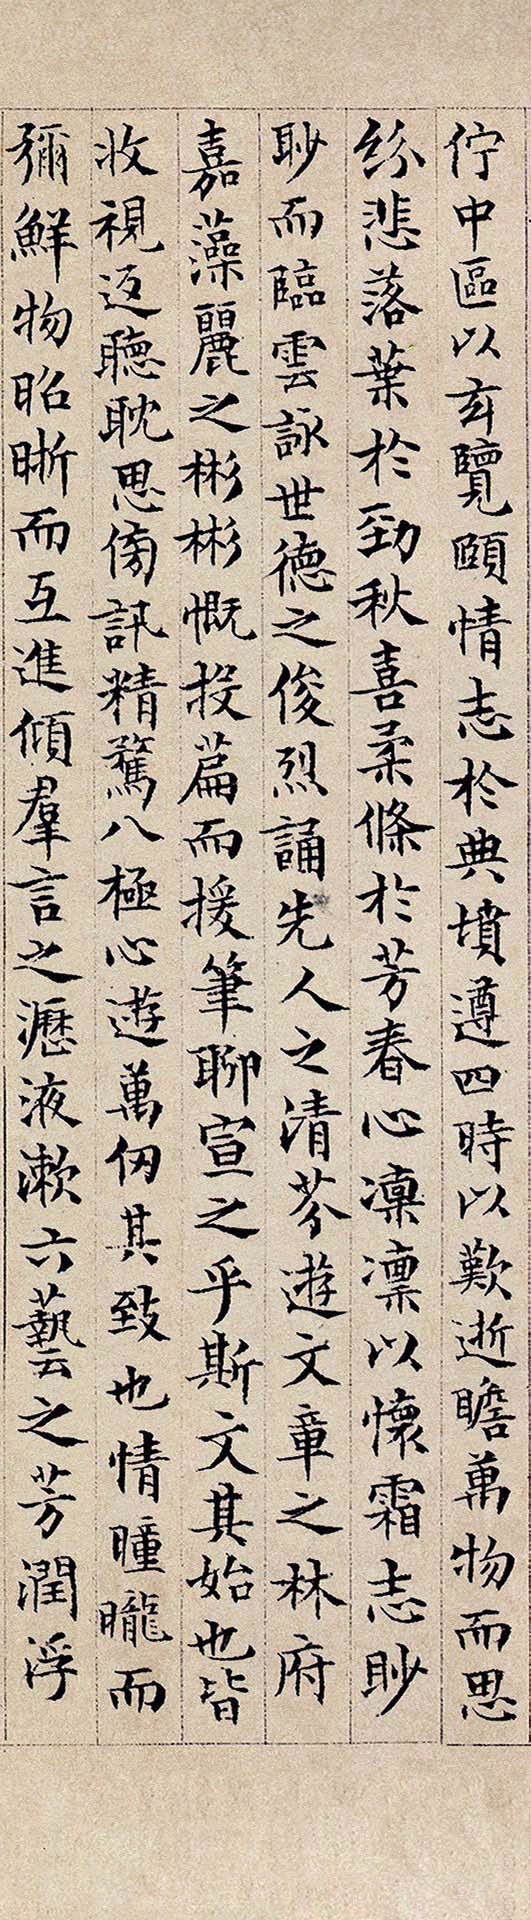 佇中區以玄覽頤情志於典墳遵四時以歎逝瞻萬物而思
紛悲落葉於勁秋喜柔條於芳春心凛凛以懷霜志眇
眇而臨雲詠世德之俊烈誦先人之清芬遊文章之林府
嘉藻麗之彬彬慨投篇而援筆聊宣之乎斯文其始也皆
收視返聽耽思傍訊精騖八極心遊萬仞其致也情曈曨而
彌鮮物昭晰而互進傾羣言之瀝液漱六藝之芳潤浮